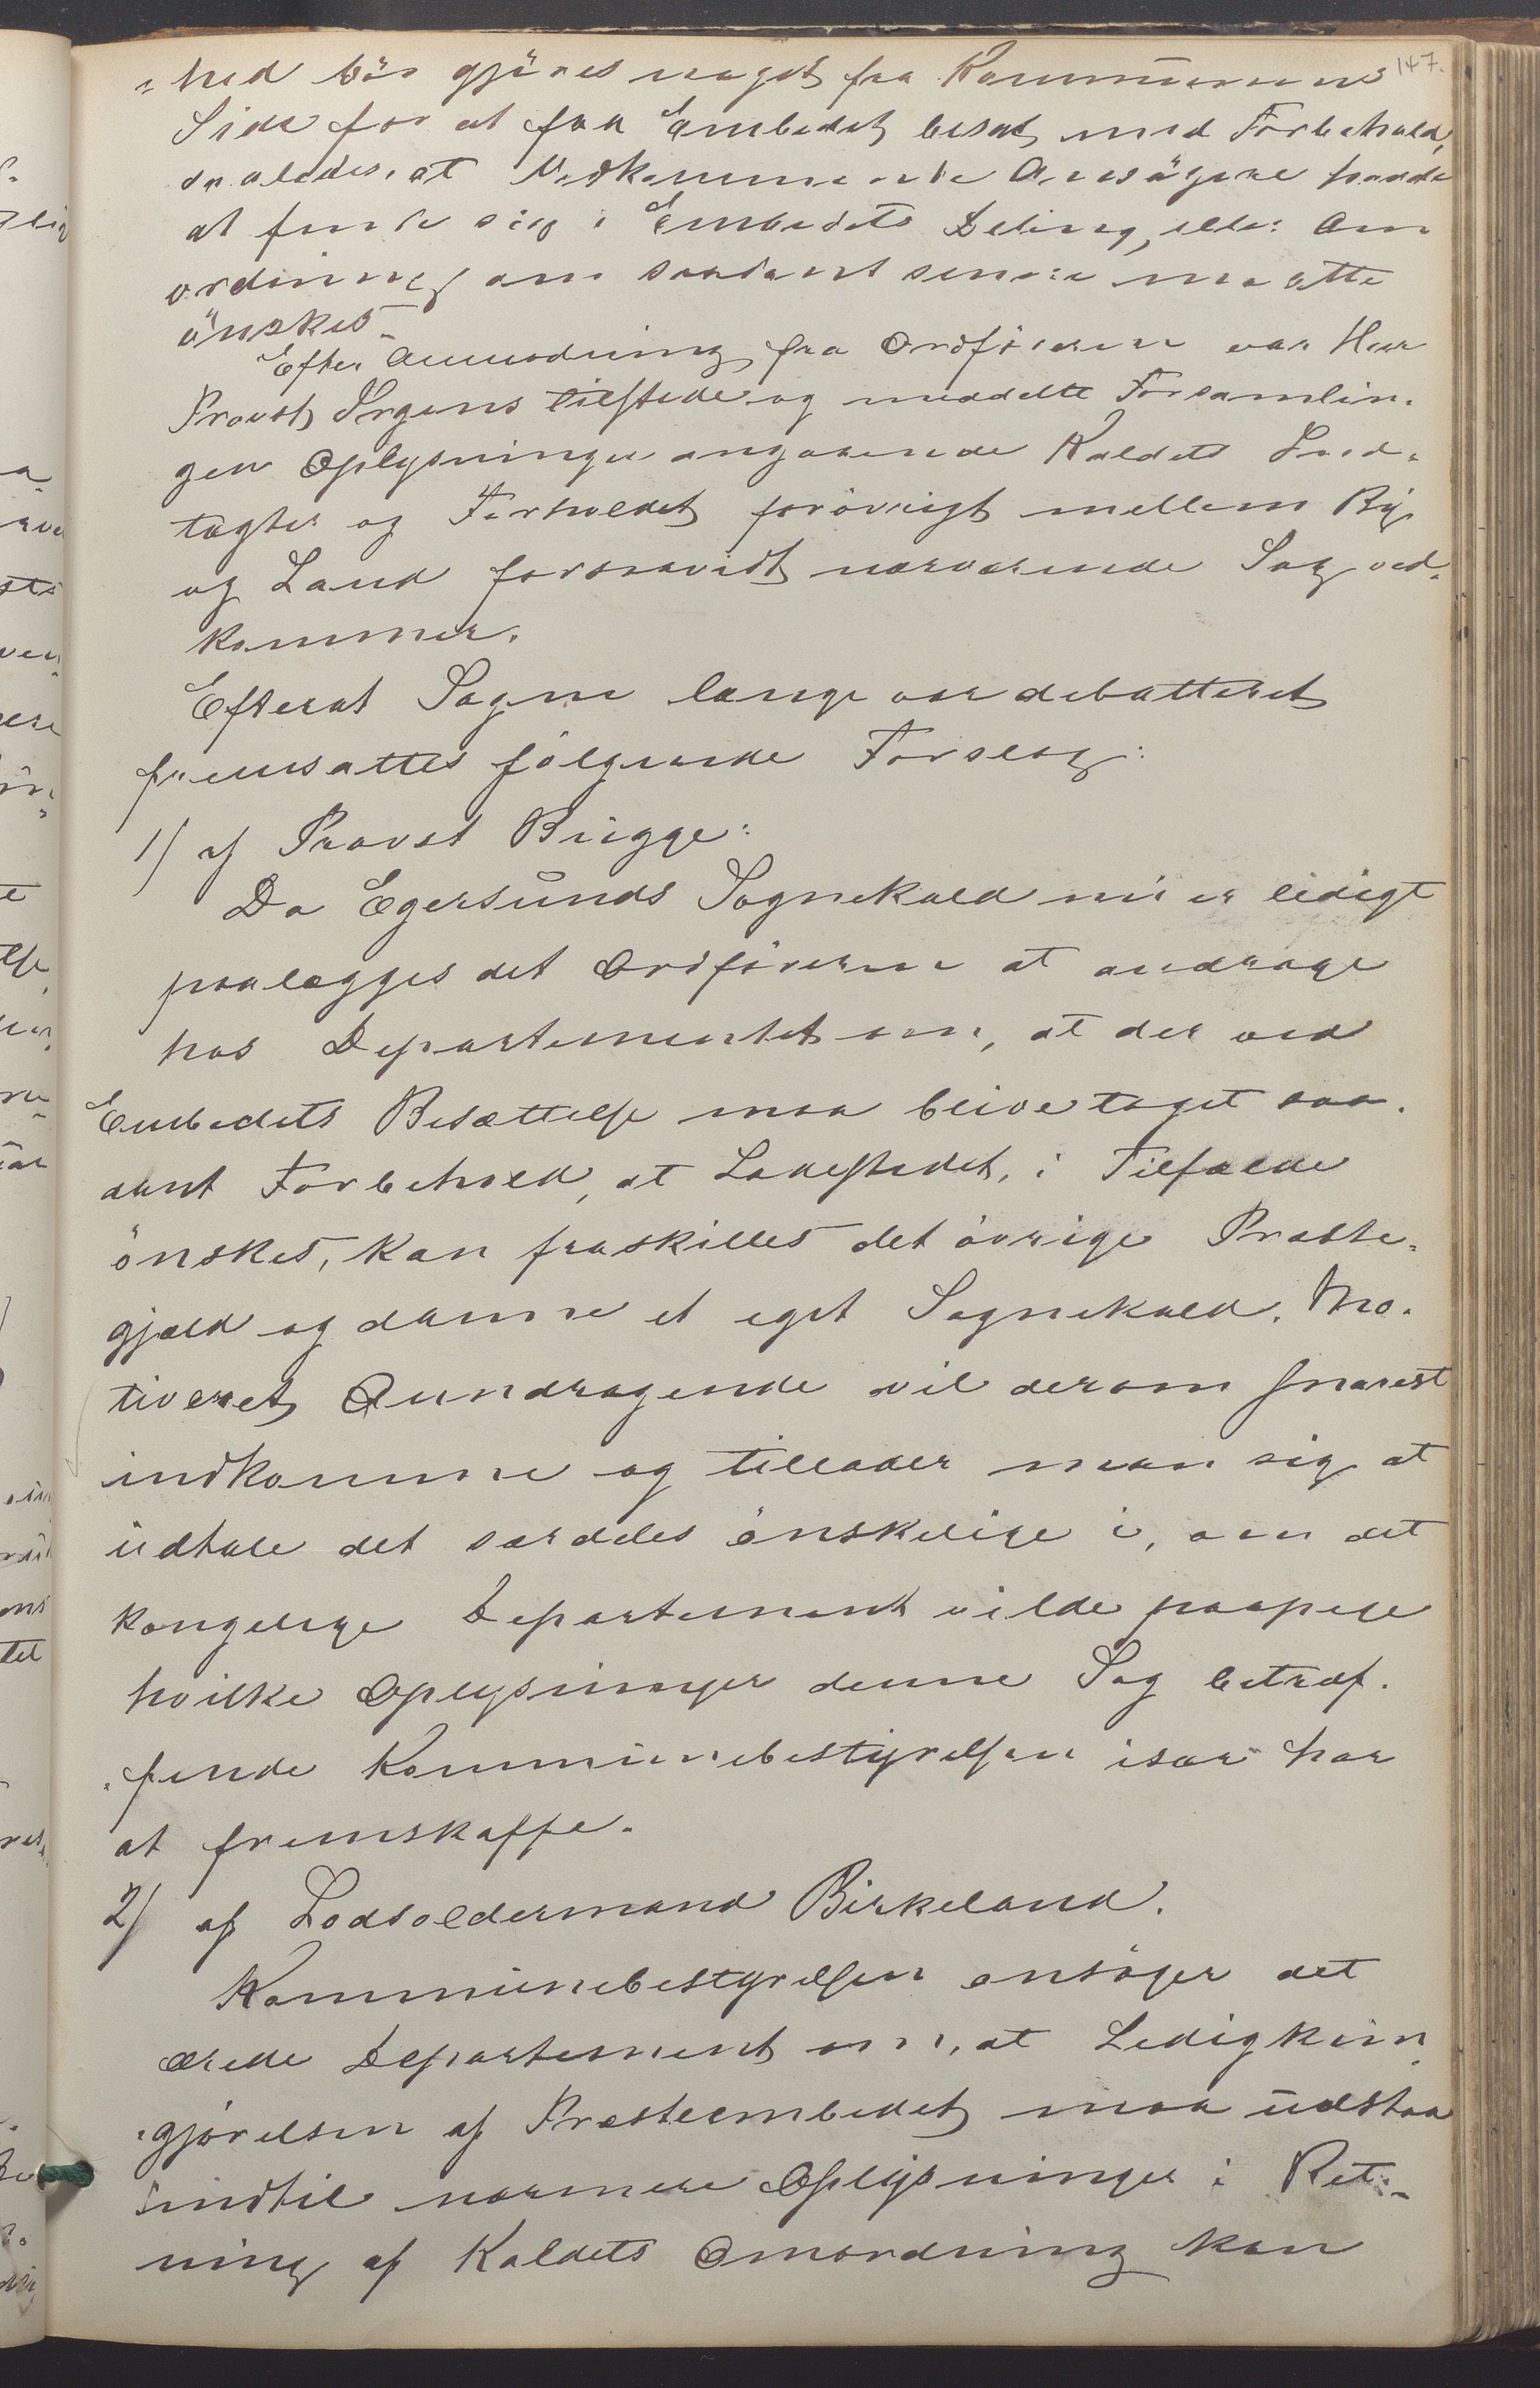 147.
"hed bör gjöres noget fra Kommunens
Side for at faa Embedet besat med Forbehold,
saaledes, at Vedkommende Ansögere fandt
at finde sig i Embedets Deling, eller Om
ordning, om saadant senere maatte
önskes.
Efter Anmodning fra Ordföreren var Herr
Provst Irgens tilstede og meddelte Forsamlin-
gen Oplysninger angaaende Kaldets Ind-
tægter og Forholdet forövrigt mellem By
og Land forsaavidt nærværende Sag ved-
kommer.
Efterat Sagen længe var debatteret
fremsattes fölgende Forslag:
1/ af Provst Brügge:
Da Egersunds Sognekald nu er ledigt
paalægges det Ordföreren at andrage
hos Departementet om, at der ved
Embedets Besættelse maa blive taget saa-
dant Forbehold, at Ladestedet, i Tilfælde
önskes, kan fraskilles det övrige Præste-
gjæld og danne et eget Sognekald. Mo-
tiveret Andragende vil derom snarest
indkomme og tillader man sig at
udtale det særdeles önskelige i, om det
kongelige Departement vilde paapege
hvilke Oplysninger denne Sag betræf-
"fende Kommunebestyrelsen især har
at fremskaffe.
2/ af Lodsoldermand Birkeland.
Kommunebestyrelsen ansöger det
ærede Departement om, at Ledigkun-
"gjörelsen af Præsteembedet maa udstaa
indtil nærmere Oplysninger i Ret-
ning af Kaldets Omordning kan